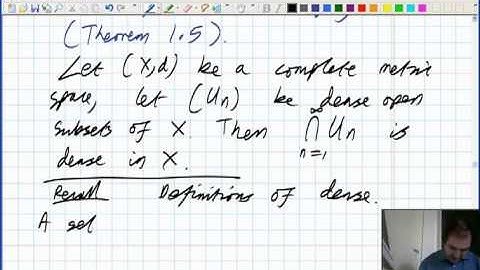 (Theorem 1.5).
Let (X,d) be a complete metric
space, let (Un) be dense open
subsets of X. Then ∞⋂n=1 Un is
dense in X.
Recall Definitions of dense.
A set